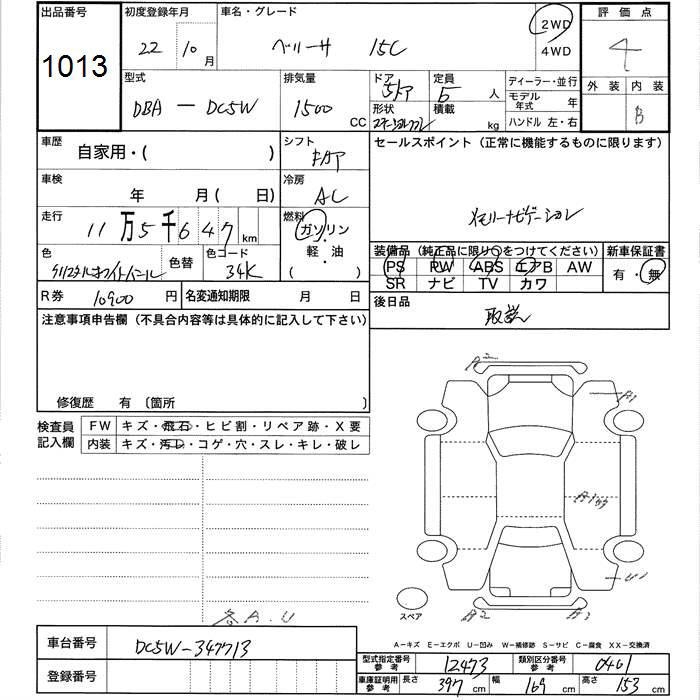 出品番号
1013
初度登録年月
22 10月
車名・グレード
ベリーサ 15C
2WD
4WD
評価点
4
外装 内装
B
型式
DBA - DC5W
排気量
1500 CC
ドア
5ドア
形状
定員
5人
積載
kg
ディーラー・並行
モデル年式 年
ハンドル 左・右
車歴
自家用・( )
シフト
冷房
AC
セールスポイント（正常に機能するものに限ります）
メモリーナビゲーション
車検
年 月( 日)
走行
11万5千647km
燃料
ガソリン
・
軽・油
( )
色
クリスタルホワイトパール
色替
色コード
34K
装備品（純正品に限り○をつけてください）
PS PW ABS エアB AW
SR ナビ TV カワ
新車保証書
有・無
R券 10900円
名変通知期限 月 日
後日品
取説
注意事項申告欄（不具合内容等は具体的に記入して下さい）
修復歴 有〔箇所 〕
検査員記入欄
FW キズ・飛石・ヒビ割・リペア跡・X要
内装 キズ・汚レ・コゲ・穴・スレ・キレ・破レ
A2
A1
U1
A2
A3
スペア
各A.U
車台番号
DC5W-347713
登録番号
A－キズ E－エクボ U－凹み W－補修跡 S－サビ C－腐食 XX－交換済
型式指定番号参考 12473
類別区分番号参考 0401
車庫証明用参考
長さ 397cm 幅 169cm 高さ 153cm